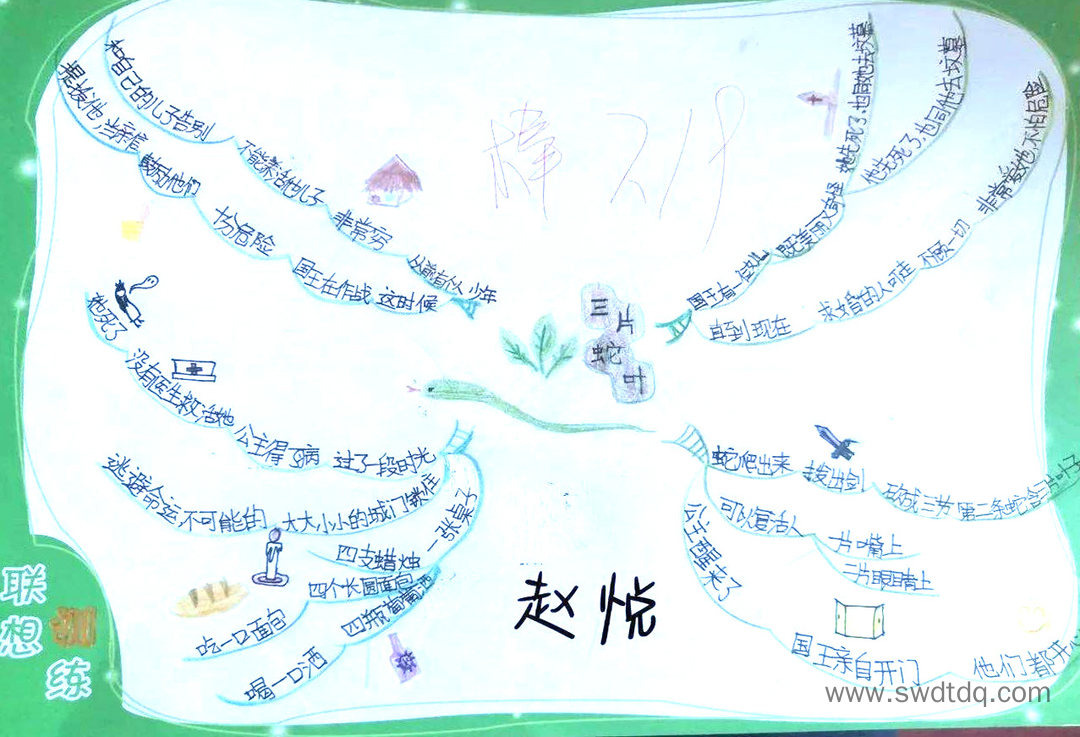 三片
蛇叶
从前有个人 少年
非常穷
不能养活他儿子
和自己的儿子告别
这时候
国王在作战
十分危险
鼓励他们
提拔他,当亲信
国王有一位女儿
既美丽又奇怪
她先死了,也同她去坟墓
他先死了,也同他去坟墓
直到现在
求婚的人可走
不顾一切
非常爱她,不怕危险
过了一段时光
公主得了病
没有医生救活她
他死了
大大小小的城门锁住
不可能的
逃避命运
一张桌子
四支蜡烛
四个长圆面包
吃一口面包
四瓶葡萄酒
喝一口酒
蛇爬出来
拔出剑
砍成三节
第二条蛇含三片叶子
可以复活人
一片嘴上
二片眼睛上
公主醒来了
国王亲自开门
他们都开心
棒
赵悦
联想训练
www.swdtdq.com